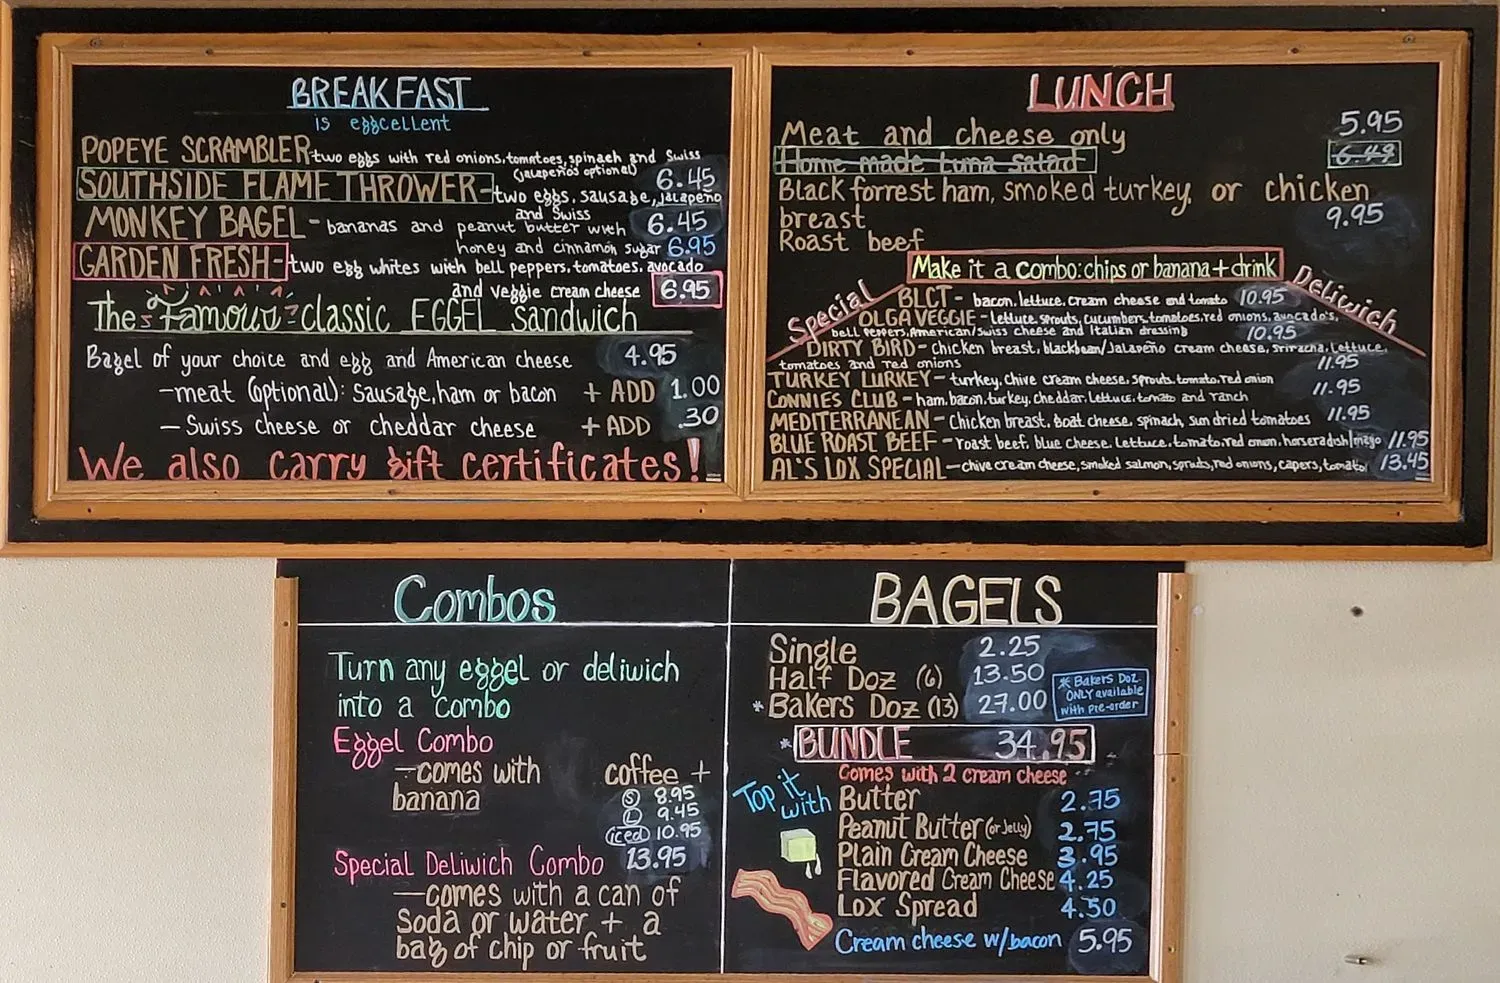 BREAKFAST
is eggcellent
POPEYE SCRAMBLER two eggs with red onions, tomatoes, spinach and Swiss
(jalapeños optional) 6.45
SOUTHSIDE FLAME THROWER- two eggs, sausage, jalapeño
and Swiss 6.45
MONKEY BAGEL - bananas and peanut butter with
honey and cinnamon sugar 6.95
GARDEN FRESH- two egg whites with bell peppers, tomatoes, avocado
and veggie cream cheese 6.95
The Famous classic EGGEL sandwich
Bagel of your choice and egg and American cheese 4.95
-meat (optional): Sausage, ham or bacon + ADD 1.00
- Swiss cheese or cheddar cheese + ADD .30
We also carry gift certificates!
LUNCH
Meat and cheese only 5.95
Home made tuna salad 6.49
Black forrest ham, smoked turkey, or chicken
breast 9.95
Roast beef
Make it a combo: chips or banana + drink
Special Deliwich
BLCT - bacon, lettuce, cream cheese and tomato 10.95
OLGA VEGGIE - lettuce, sprouts, cucumbers, tomatoes, red onions, avocado's,
bell peppers, American/Swiss cheese and Italian dressing 10.95
DIRTY BIRD - chicken breast, blackbean/Jalapeño cream cheese, sriracha, lettuce,
tomatoes and red onions 11.95
TURKEY LURKEY - turkey, chive cream cheese, sprouts, tomato, red onion 11.95
CONNIES CLUB - ham, bacon, turkey, cheddar, lettuce, tomato and ranch
MEDITERRANEAN - Chicken breast, Goat cheese, spinach, sun dried tomatoes 11.95
BLUE ROAST BEEF - roast beef, blue cheese, lettuce, tomato, red onion, horseradish/mayo 11.95
AL'S LOX SPECIAL - chive cream cheese, smoked salmon, sprouts, red onions, capers, tomato 13.45
Combos
Turn any eggel or deliwich
into a combo
Eggel Combo
-comes with coffee +
banana
S 8.95
L 9.45
iced 10.95
Special Deliwich Combo 13.95
-comes with a can of
soda or water + a
bag of chip or fruit
BAGELS
Single 2.25
Half Doz (6) 13.50
* Bakers Doz (13) 27.00
* Bakers Doz.
ONLY available
with pre-order
* BUNDLE 34.95
Comes with 2 cream cheese
Top it with
Butter 2.75
Peanut Butter (or Jelly) 2.75
Plain Cream Cheese 3.95
Flavored Cream Cheese 4.25
Lox Spread 4.50
Cream cheese w/bacon 5.95